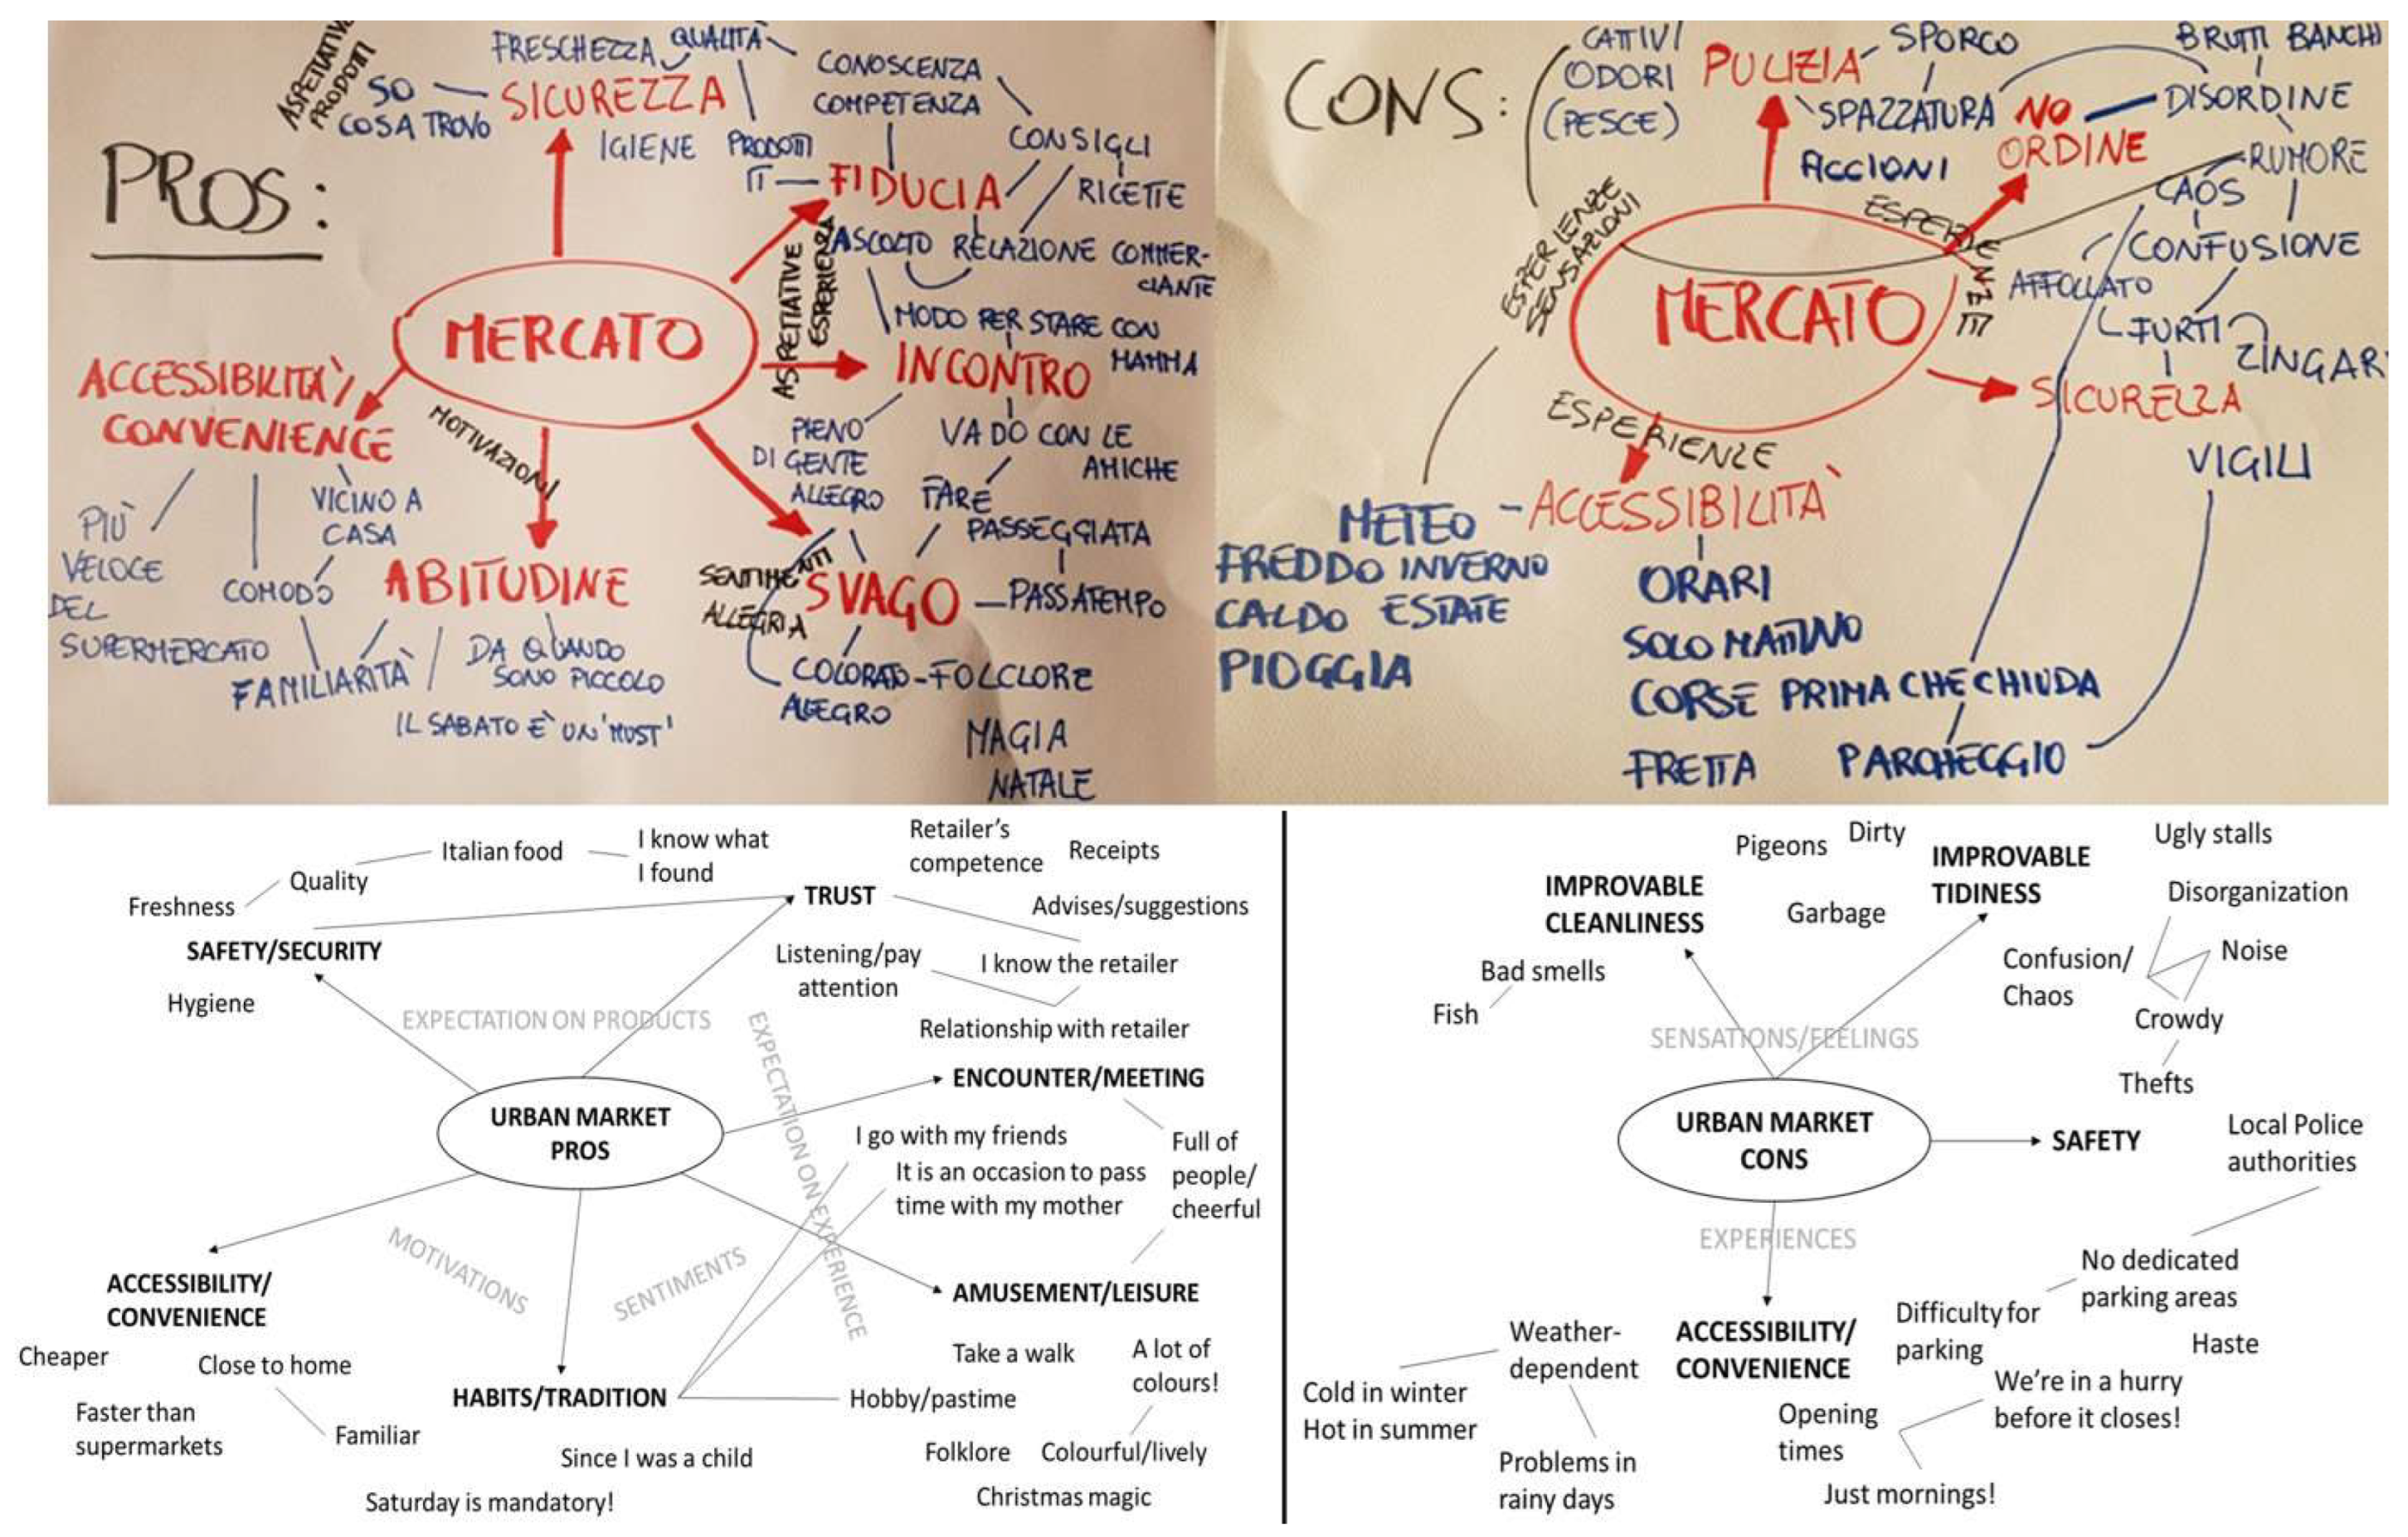 PROS:
ASPETTATIVE
PRODOTTI
FRESCHEZZA
QUALITÀ
SO
COSA TROVO
SICUREZZA
IGIENE
PRODOTTI
IT
CONOSCENZA
COMPETENZA
CONSIGLI
FIDUCIA
RICETTE
ASCOLTO
RELAZIONE COMMER-
CIANTE
ASPETTATIVE
ESPERIENZA
MODO PER STARE CON
MAMMA
MERCATO
INCONTRO
ACCESSIBILITÀ/
CONVENIENCE
MOTIVAZIONI
PIENO
DI GENTE
ALLEGRO
VADO CON LE
AMICHE
FARE
PASSEGGIATA
PIÙ
VELOCE
DEL
SUPERMERCATO
VICINO A
CASA
COMODO
ABITUDINE
SENTIMENTI
ALLEGRIA
SVAGO
PASSATEMPO
FAMILIARITÀ
DA QUANDO
SONO PICCOLO
IL SABATO È UN 'MUST'
COLORATO-FOLCLORE
ALLEGRO
MAGIA
NATALE
CONS:
CATTIVI
ODORI
(PESCE)
PULIZIA
SPORCO
SPAZZATURA
BRUTTI BANCHI
NO
ORDINE
DISORDINE
RUMORE
CAOS
CONFUSIONE
AFFOLLATO
FURTI
ZINGAR
ESPERIENZE
SENSAZIONI
ESPERIENZE
MERCATO
SICUREZZA
ESPERIENZE
VIGILI
METEO
ACCESSIBILITÀ
FREDDO INVERNO
CALDO ESTATE
PIOGGIA
ORARI
SOLO MATTINO
CORSE PRIMA CHE CHIUDA
FRETTA
PARCHEGGIO
Italian food
I know what
I found
Retailer's
competence
Receipts
Quality
Freshness
TRUST
Advises/suggestions
SAFETY/SECURITY
Listening/pay
attention
I know the retailer
Hygiene
EXPECTATION ON PRODUCTS
Relationship with retailer
EXPECTATION ON EXPERIENCE
ENCOUNTER/MEETING
URBAN MARKET
PROS
I go with my friends
It is an occasion to pass
time with my mother
Full of
people/
cheerful
MOTIVATIONS
SENTIMENTS
ACCESSIBILITY/
CONVENIENCE
AMUSEMENT/LEISURE
Cheaper
Close to home
Take a walk
A lot of
colours!
HABITS/TRADITION
Hobby/pastime
Faster than
supermarkets
Familiar
Since I was a child
Folklore
Colourful/lively
Saturday is mandatory!
Christmas magic
Pigeons
Dirty
IMPROVABLE
TIDINESS
Ugly stalls
IMPROVABLE
CLEANLINESS
Garbage
Disorganization
Bad smells
Fish
Confusion/
Chaos
Noise
Crowdy
SENSATIONS/FEELINGS
Thefts
URBAN MARKET
CONS
SAFETY
Local Police
authorities
EXPERIENCES
No dedicated
parking areas
Difficulty for
parking
Weather-
dependent
ACCESSIBILITY/
CONVENIENCE
Haste
Cold in winter
Hot in summer
We're in a hurry
before it closes!
Opening
times
Problems in
rainy days
Just mornings!